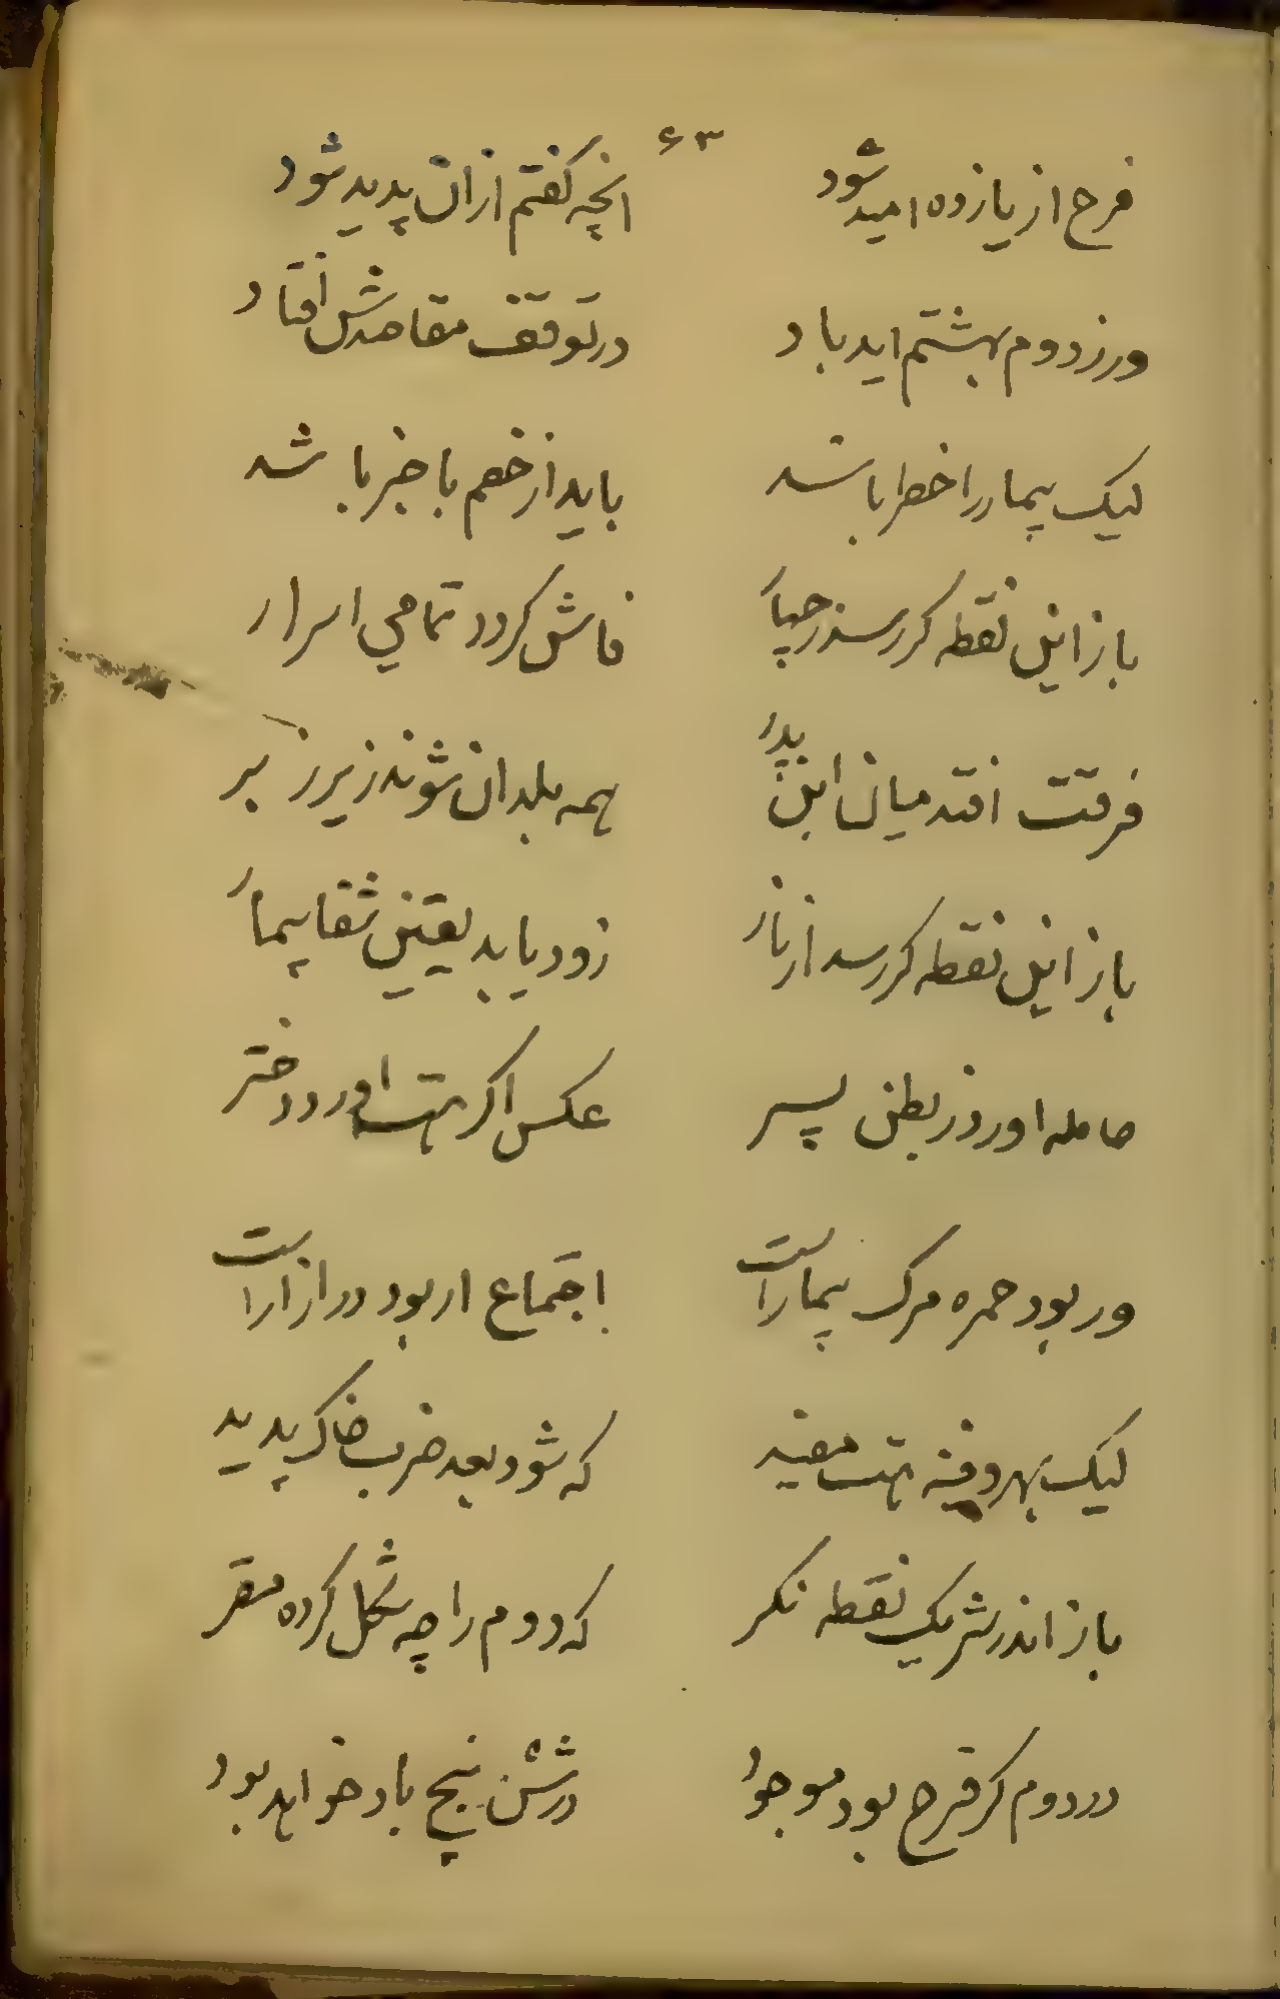 ۶۳
فرح از یازده امید شود انچه کفتم ازان پدید شود
ور ز دوم بهشتم اید باد در توقف مقاصدش افتاد
لیک بیمار را خطر باشد باید از خصم با خبر باشد
باز این نقطه کر رسد فاش کردد تمامی اسرار
فرقت افتد میان ابن پدر همه بلدان شوند زیر زبر
باز این نقطه کر رسد از نار زود یابد یقین شفا بیمار
حامله اورد ز بطن پسر عکس اکر هست اورد دختر
ور بود حمره مرک بیمار است اجتماع ار بود در ازار است
لیک بهر دفینه هست مفید که شود بعد ضرب خاک پدید
باز اندر شریک نقطه نکر که دوم را چه شکل کرده مقر
در دوم کر فرح بود موجود در شش پنج باد خواهد بود